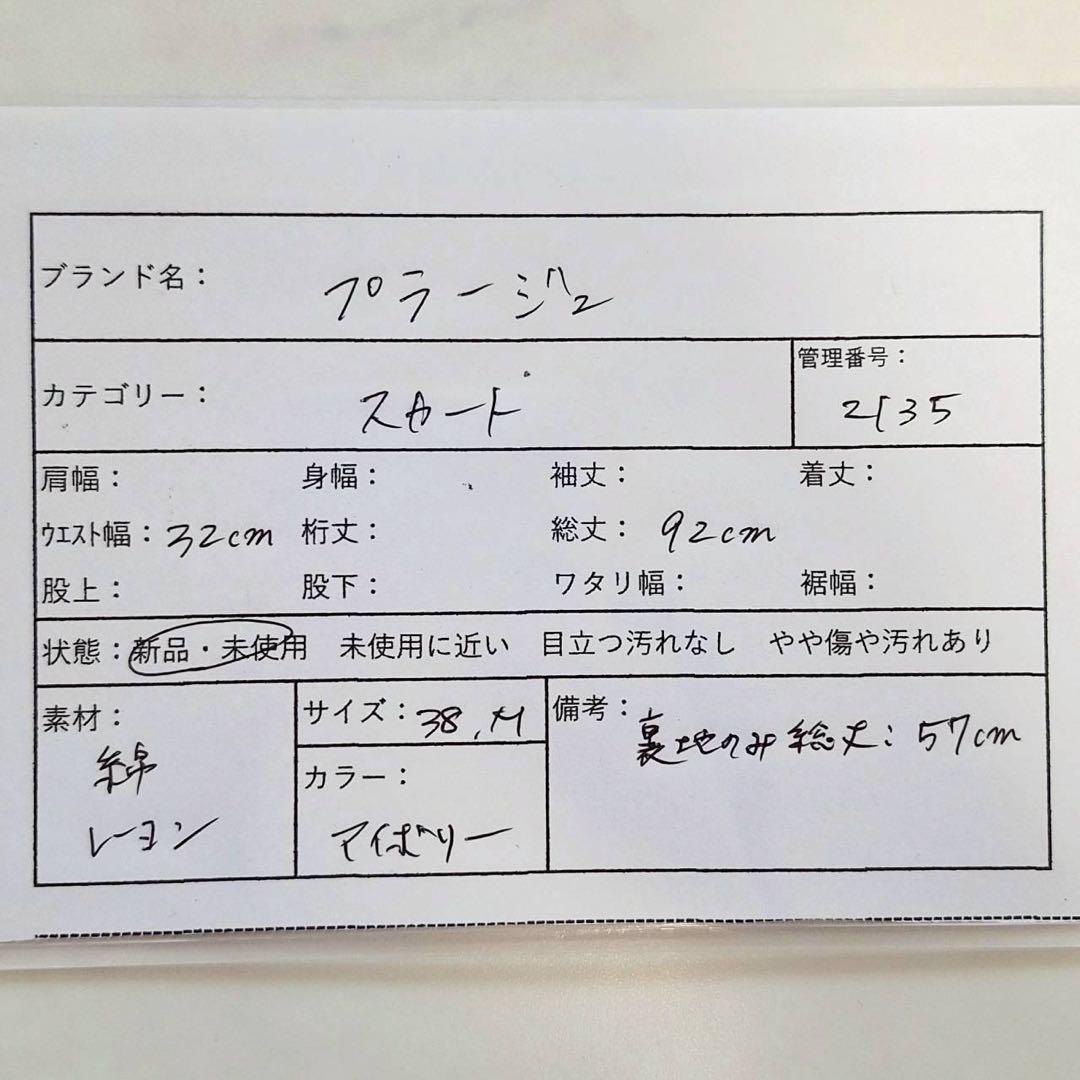 ブランド名： プラージュ
カテゴリー： スカート
管理番号：
2135
肩幅： 身幅： 袖丈： 着丈：
ウエスト幅：32cm 桁丈： 総丈：92cm
股上： 股下： ワタリ幅： 裾幅：
状態：新品・未使用 未使用に近い 目立つ汚れなし やや傷や汚れあり
素材：
綿
レーヨン
サイズ：38,M
カラー：
アイボリー
備考：
裏地のみ総丈：57cm